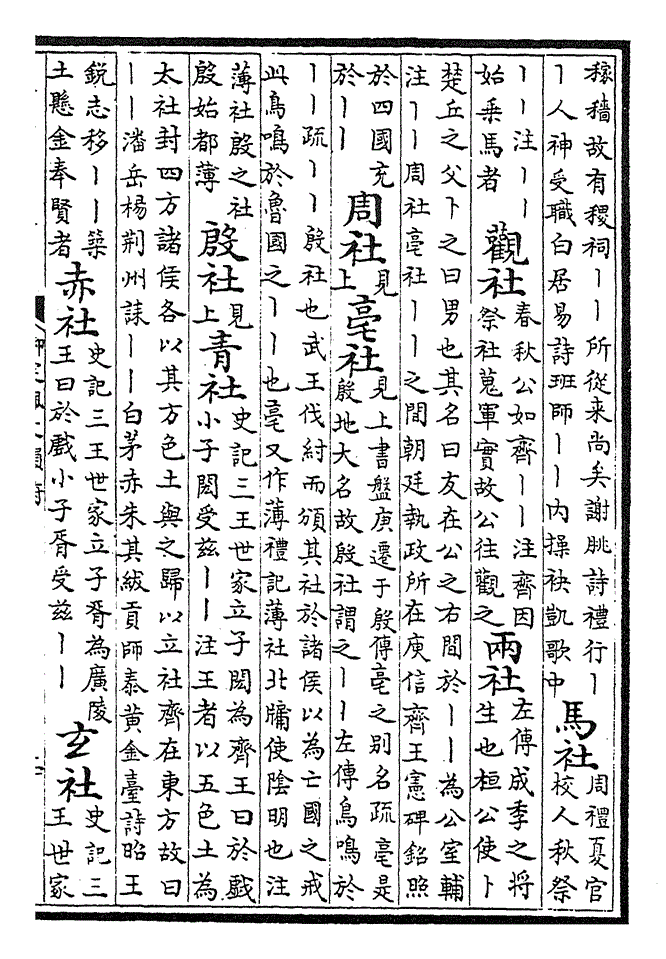 稼穡故有稷祠丨丨所從来尚矣謝朓詩禮行丨
丨人神受職白居易詩班師丨丨内操袂凱歌中
馬社
周禮夏官
校人秋祭
丨丨注丨丨
始乘馬者
觀社
春秋公如齊丨丨注齊因
祭社蒐軍實故公往觀之
兩社
左傳成季之將
生也桓公使卜
楚丘之父卜之曰男也其名曰友在公之右間於丨丨為公室輔
注丨丨周社亳社丨丨之間朝廷執政所在庾信齊王憲碑銘照
於四國充
於丨丨
周社
見
上
亳社
見上書盤庚遷于殷傳亳之别名疏亳是
殷地大名故殷社謂之丨丨左傳鳥鳴於
丨丨疏丨丨殷社也武王伐紂而頒其社於諸侯以為亡國之戒
此鳥鳴於魯國之丨丨也亳又作薄禮記薄社北牖使陰明也注
薄社殷之社
殷始都薄
殷社
見
上
青社
史記三王世家立子閎為齊王曰於戲
小子閎受兹丨丨注王者以五色土為
太社封四方諸侯各以其方色土與之歸以立社齊在東方故曰
丨丨潘岳楊荆州誄丨丨白茅赤朱其紱貢師泰黄金臺詩昭王
銳志移丨丨築
土懸金奉賢者
赤社
史記三王世家立子胥為廣陵
王曰於戲小子胥受兹丨丨
玄社
史記三
王世家